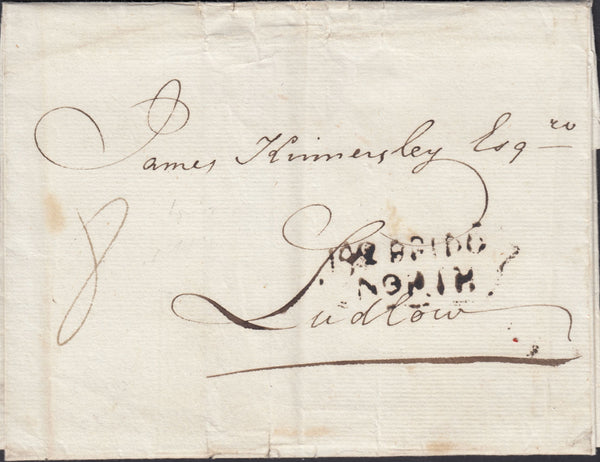 James Kinnersley Esq.re
8
BRIDG
NORTH
Ludlow